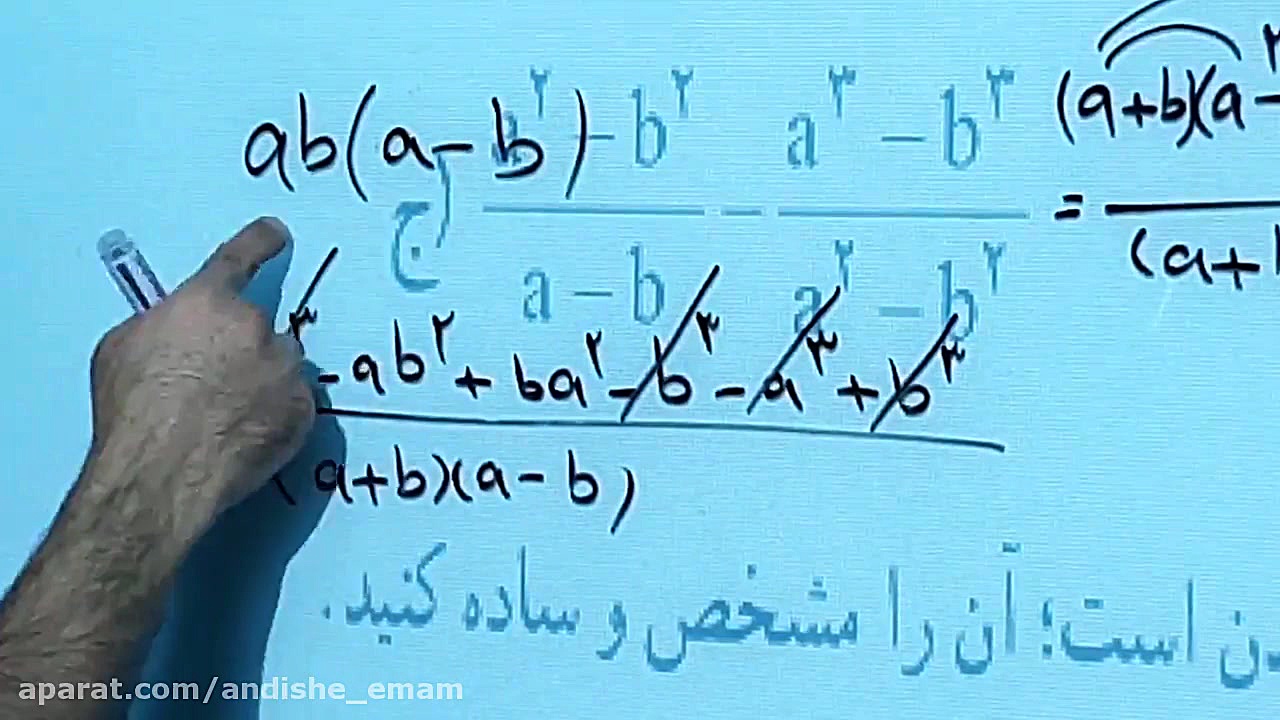 ab(a-b)
ج) (a² - b²)/(a - b) - (a³ - b³)/(a² - b²)
= (a+b)(a² -
(a+
³ - ab² + ba² - b³ - a³ + b³
(a+b)(a-b)
است؛ آن را مشخص و ساده کنید.
aparat.com/andishe_emam